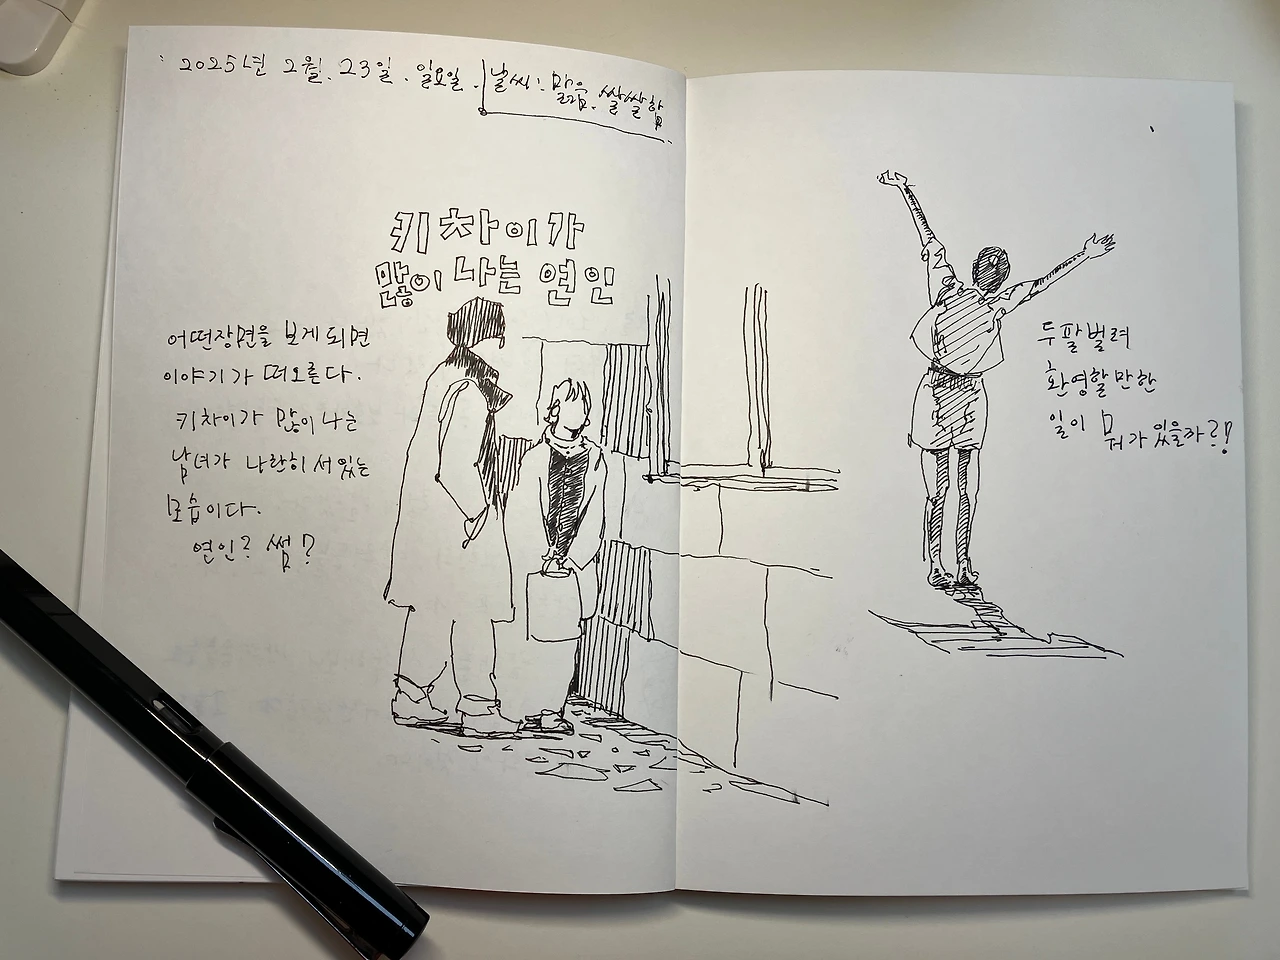 2025년 2월. 23일. 일요일. 날씨: 맑음. 쌀쌀함
키 차이가
많이 나는 연인
어떤장면을 보게 되면
이야기가 떠오른다.
키차이가 많이 나는
남녀가 나란히 서있는
모습이다.
연인? 썸?
두팔벌려
환영할 만한
일이 뭐가 있을까?!